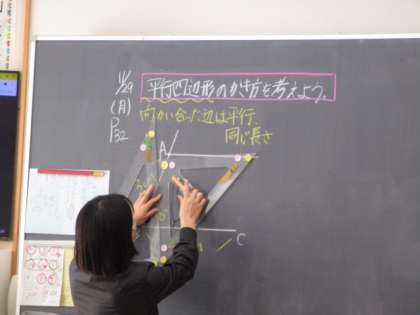 11/29
(月)
P32
平行四辺形のかき方を考えよう。
向かい合った辺は平行、
同じ長さ
A
C